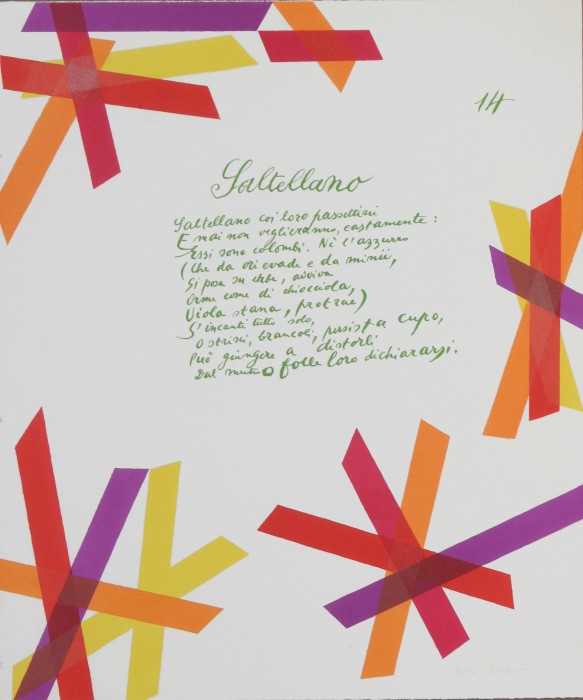 14
Saltellano
Saltellano coi loro passettini
E mai non veglieranno, castamente:
Essi sono colombi. Né l'azzurro
(Che da ori evade e da minii,
Si posa su erbe, avviva
Orme come di chiocciola,
Viola stana, protrae)
S'incanti tutto solo,
O strisci, brancoli, persista cupo,
Può giungere a distorli
Dal muto o folle loro dichiararsi.